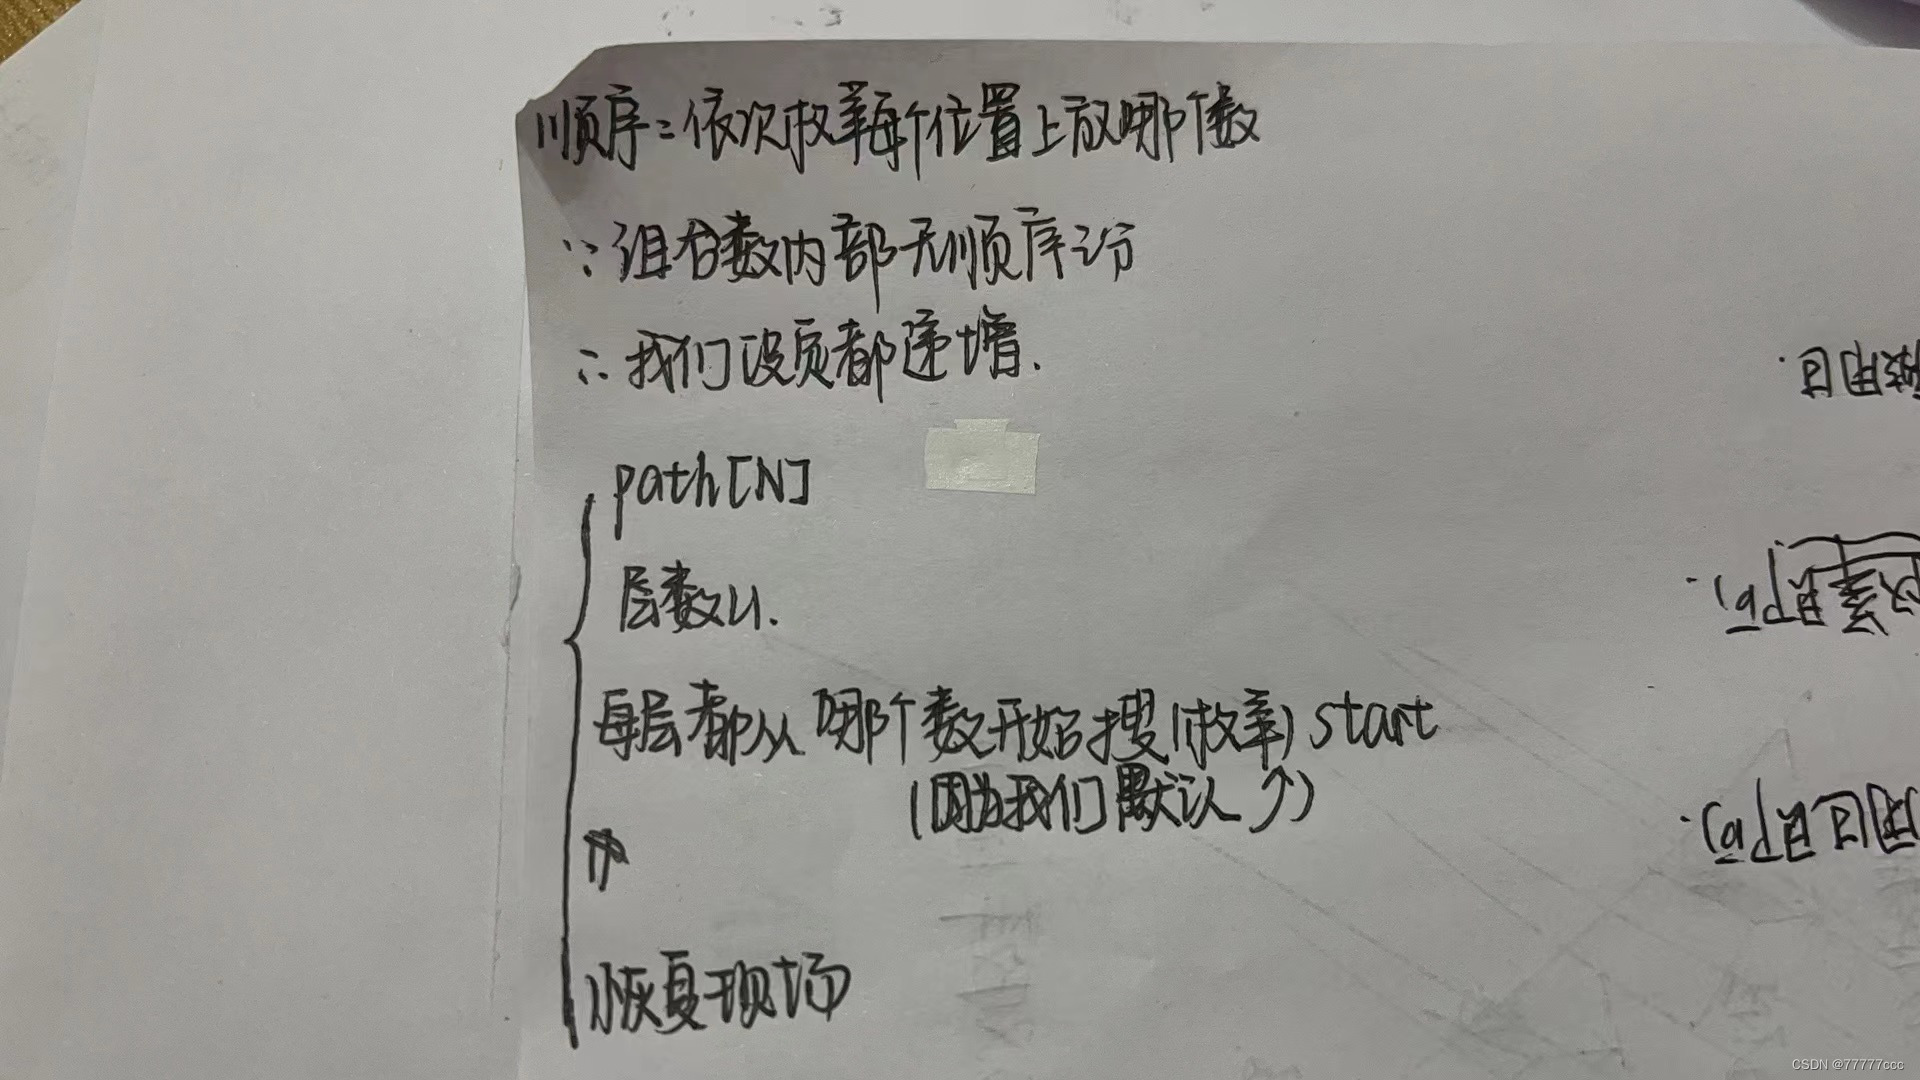 顺序:依次枚举每个位置上放哪个数
∵组合数内部无顺序之分
∴我们设质都递增.
path[N]
层数u.
每层都从哪个数开始搜(枚举) start
(因为我们默认↑)
恢复现场
CSDN @77777ccc